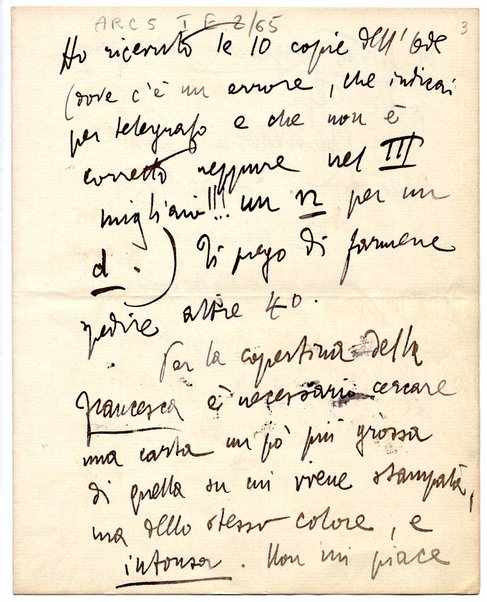 ARC 5 I E 2/65
3
Ho ricevuto le 10 copie dell'Ode
(dove c'è un errore, che indicai
per telegrafo e che non è
corretto neppure nel III
migliaio!!! un n per un
d.) Ti prego di farmene
spedire altre 40.
Per la copertina della
Francesca è necessario cercare
una carta un pò più grossa
di quella su cui viene stampata,
ma dello stesso colore, e
intonsa. Non mi piace